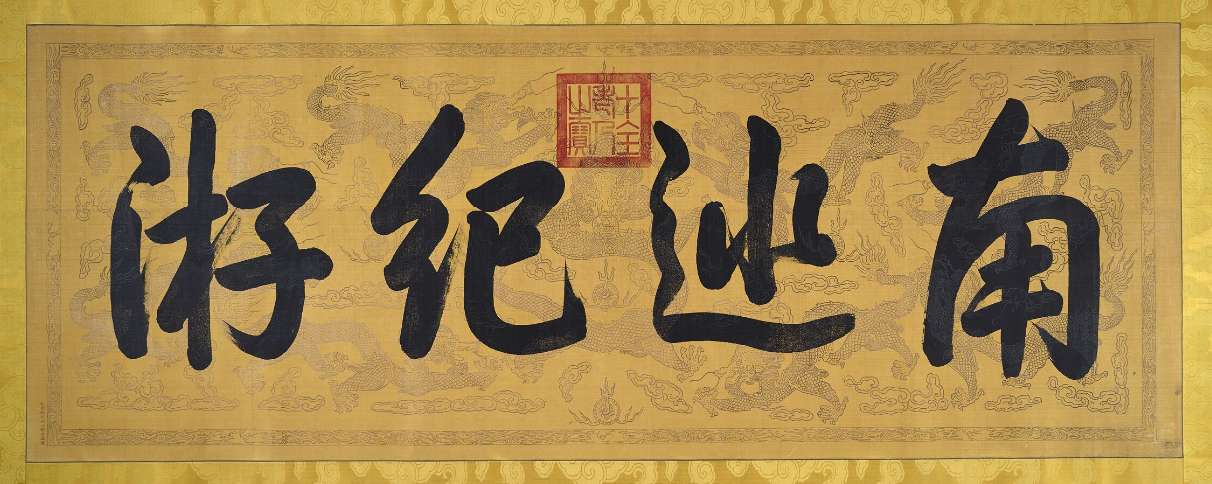 南巡紀游
十全老人之寶